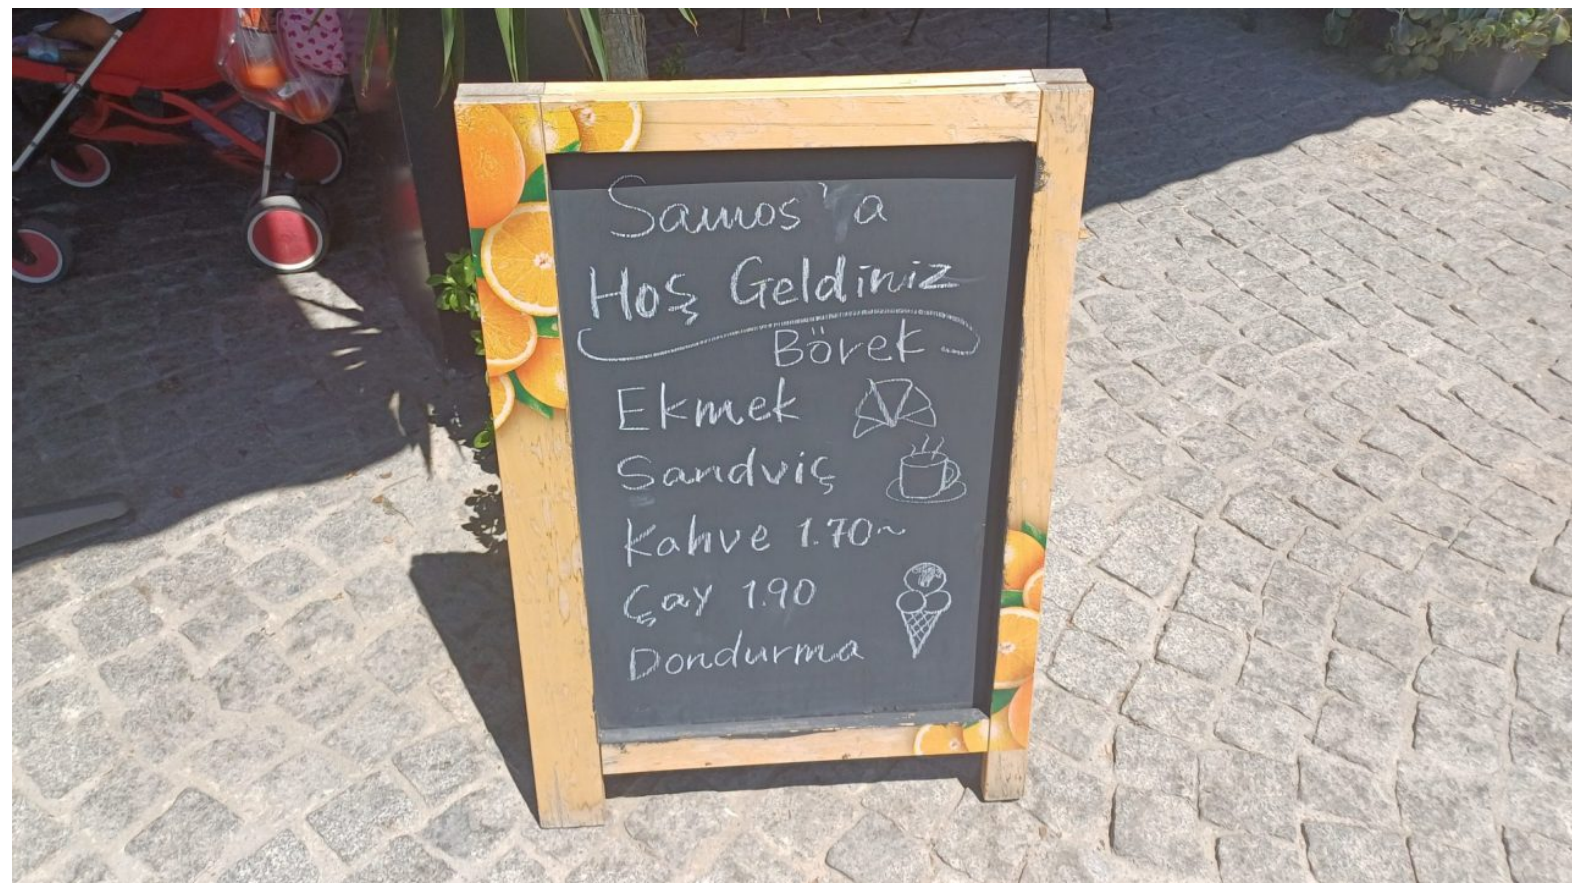 Samos'a
Hoş Geldiniz
Börek
Ekmek
Sandviç
Kahve 1.70~
Çay 1.90
Dondurma